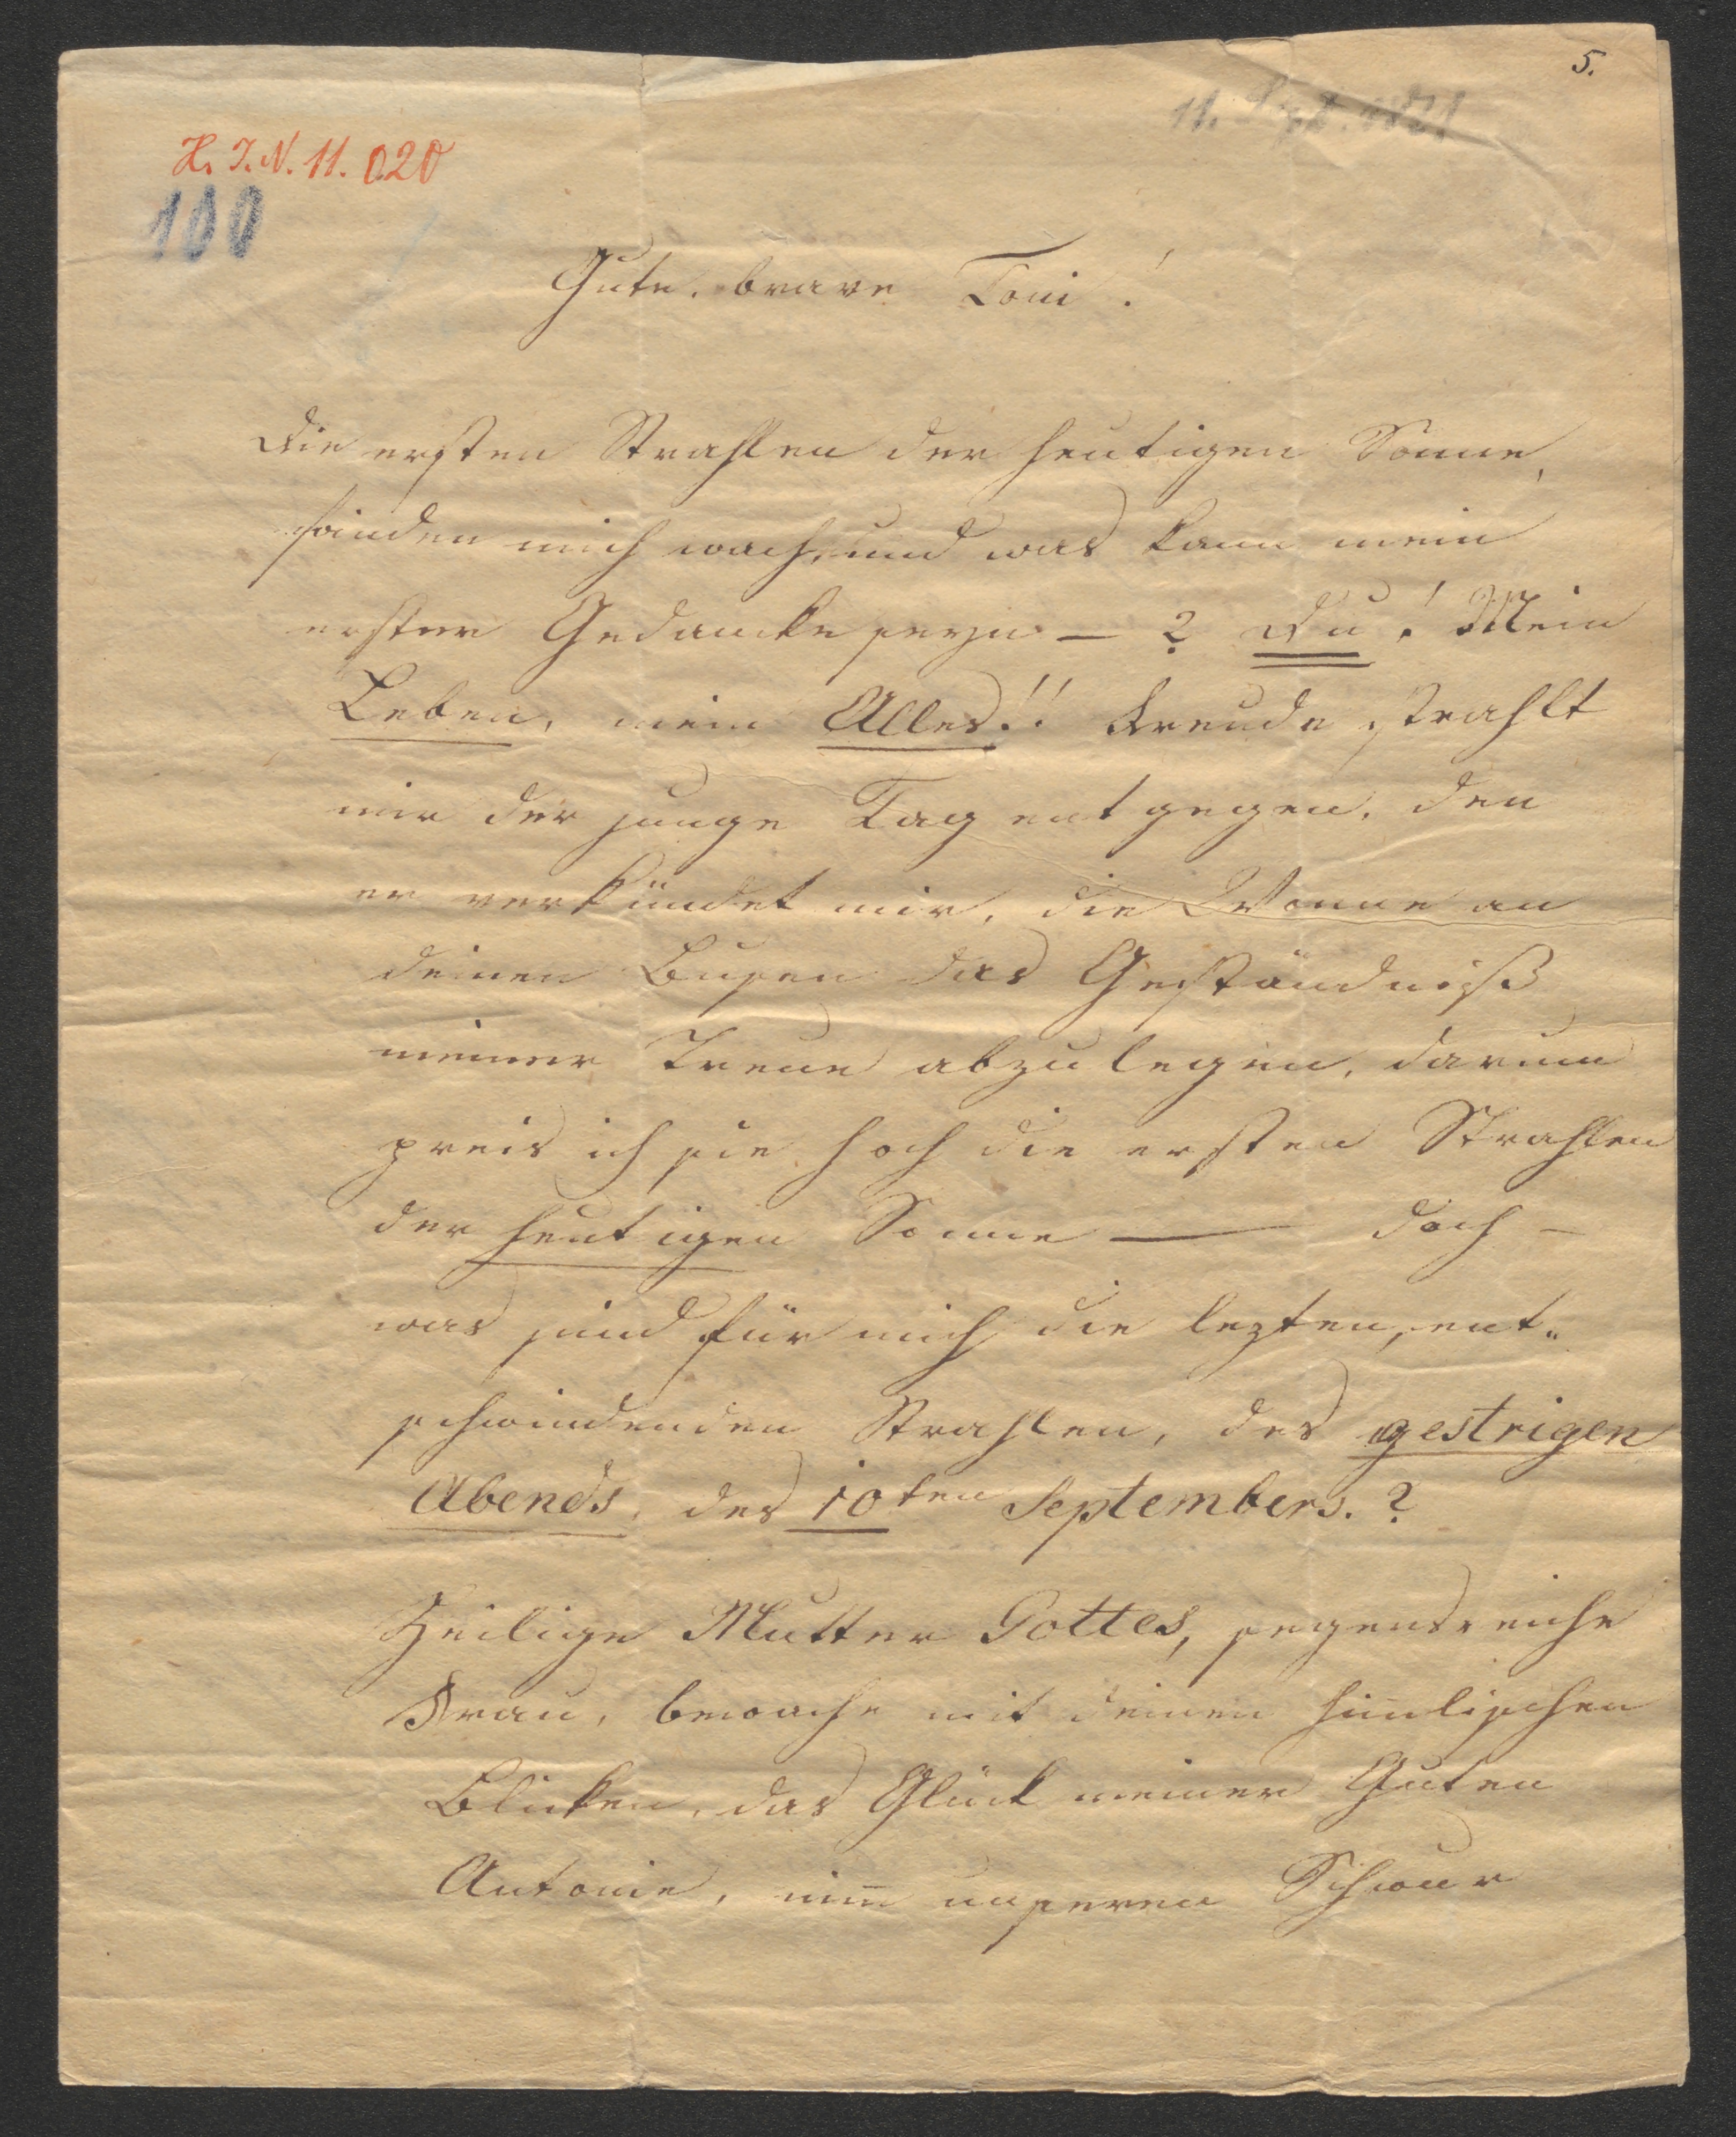 5.
11. Sept. 1821
H. I. N. 11.020
100
Gute, brave Toni!
Die ersten Strahlen der heutigen Sonne,
finden mich wach, und was kann mein
erster Gedanke seyn — ? Du! Mein
Leben, mein Alles!! Freude strahlt
mir der junge Tag entgegen, den
er verkündet mir, die Wonne an
deinen Busen das Geständniß
meiner Treue abzulegen, darum
preis ich sie hoch die ersten Strahlen
der heutigen Sonne — doch —
was sind für mich die lezten, ent„
schwindenden Strahlen, des gestrigen
Abends, des 10ten Septembers.?
Heilige Mutter Gottes, segensreiche
Frau, bewache mit deinen him̅lischen
Blicken, das Glück meiner Guten
Antonie, nim̅ unseren Schwur